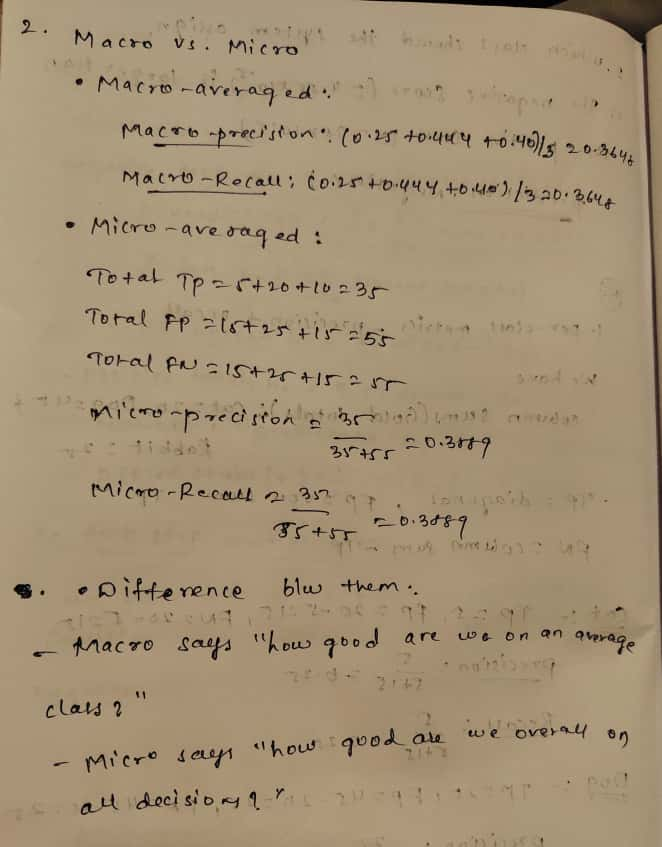 2. Macro vs. Micro
• Macro-averaged:
Macro-precision: (0.25 +0.444 +0.40)/3 = 0.3648
Macro-Recall: (0.25+0.444+0.40)/3 = 0.3648
• Micro-averaged:
Total Tp = 5+20+10=35
Total FP = 15+25+15=55
Total FN = 15+25+15=55
Micro-precision = 35
35+55 = 0.3889
Micro-Recall = 35
35+55 = 0.3889
• Difference b/w them:
- Macro says "how good are we on an average
class?"
- Micro says "how good are we overall on
all decisions?"